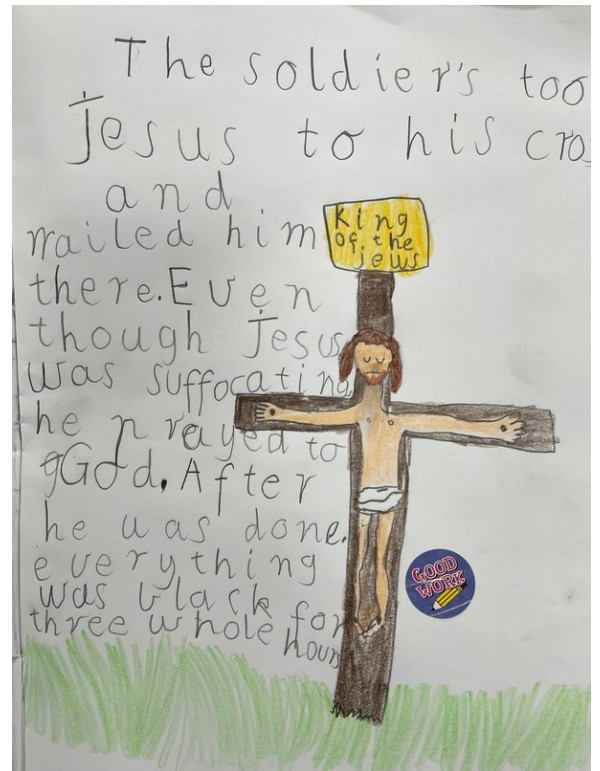 The soldier's too
Jesus to his cro
and
nailed him
there. Even
though Jesus
was suffocating
he prayed to
gGod. After
he was done.
everything
was black for
three whole
hours
King
of the
jews
GOOD
WORK